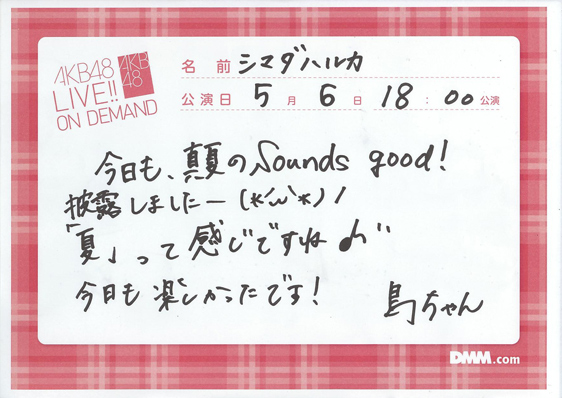 AKB48
LIVE!!
ON DEMAND
AKB
48
名前 シマダハルカ
公演日 5月6日 18:00公演
今日も、真夏のSounds good!
披露しましたー(*´ω`*)ノ
「夏」って感じですね♪"
今日も楽しかったです!
島ちゃん
DMM.com